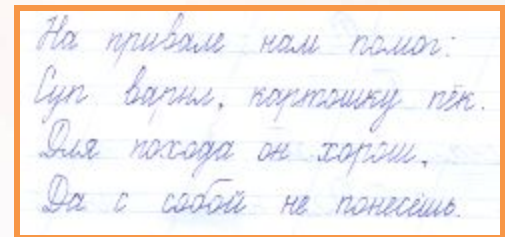 На привале нам помог:
Суп варил, картошку пёк.
Для похода он хорош,
Да с собой не понесёшь.